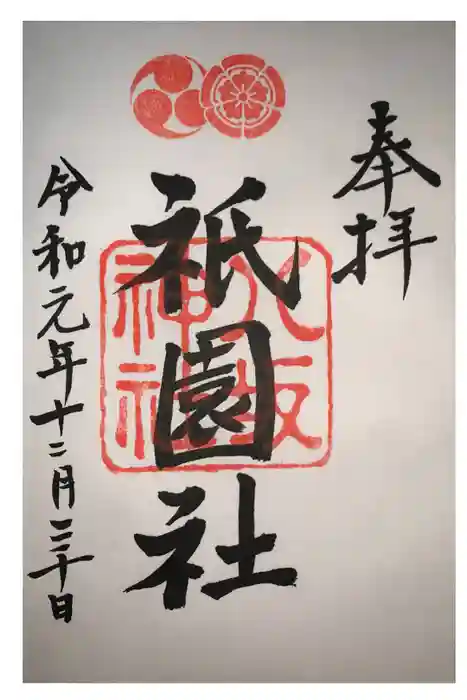 奉拝
八坂
神社
祇園社
令和元年十二月三十日